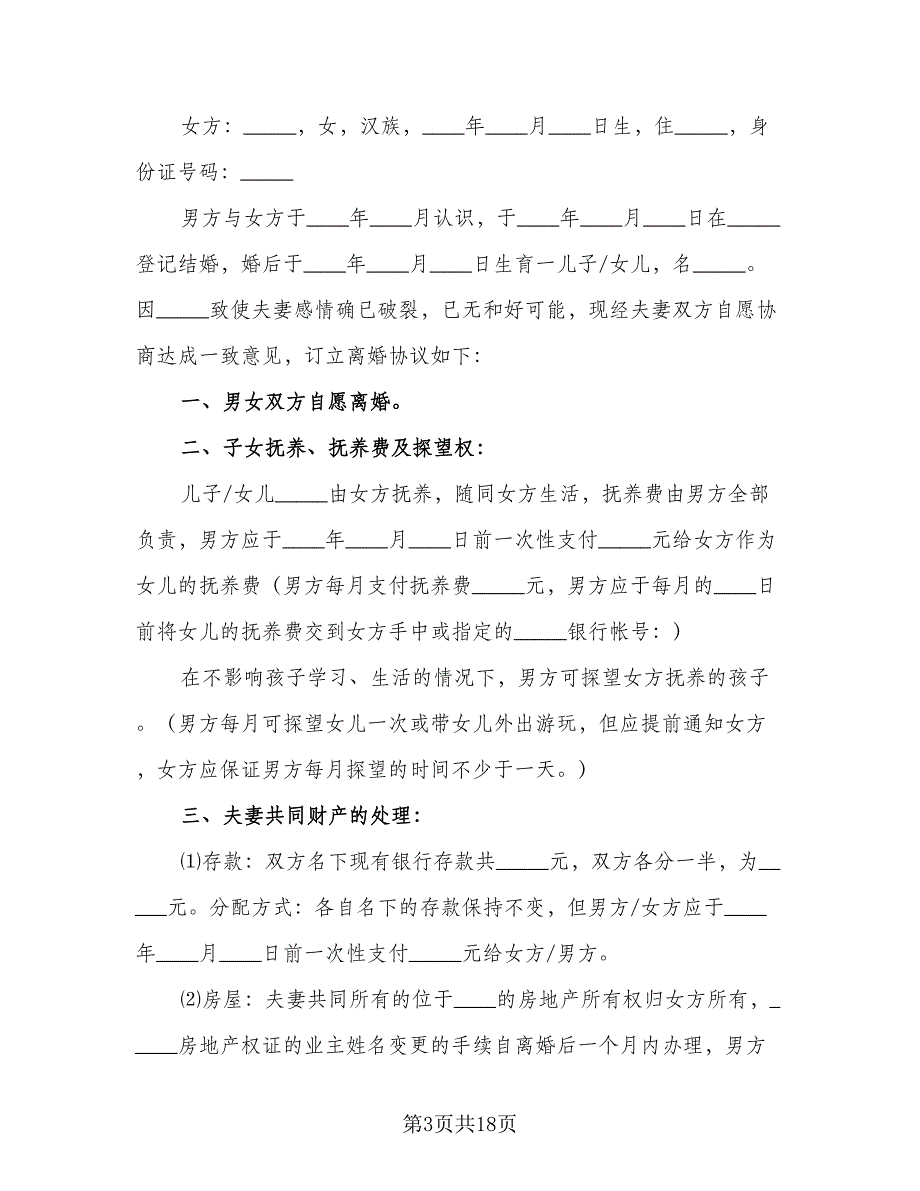 女方：_____，女，汉族，____年____月____日生，住_____，身
份证号码：_____
男方与女方于____年____月认识，于____年____月____日在_____
登记结婚，婚后于____年____月____日生育一儿子/女儿，名_____。
因_____致使夫妻感情确已破裂，已无和好可能，现经夫妻双方自愿协
商达成一致意见，订立离婚协议如下：
一、男女双方自愿离婚。
二、子女抚养、抚养费及探望权：
儿子/女儿_____由女方抚养，随同女方生活，抚养费由男方全部
负责，男方应于____年____月____日前一次性支付_____元给女方作为
女儿的抚养费（男方每月支付抚养费_____元，男方应于每月的____日
前将女儿的抚养费交到女方手中或指定的_____银行帐号：）
在不影响孩子学习、生活的情况下，男方可探望女方抚养的孩子
。（男方每月可探望女儿一次或带女儿外出游玩，但应提前通知女方
，女方应保证男方每月探望的时间不少于一天。）
三、夫妻共同财产的处理：
⑴存款：双方名下现有银行存款共_____元，双方各分一半，为__
___元。分配方式：各自名下的存款保持不变，但男方/女方应于____
年____月____日前一次性支付_____元给女方/男方。
⑵房屋：夫妻共同所有的位于____的房地产所有权归女方所有，_
____房地产权证的业主姓名变更的手续自离婚后一个月内办理，男方
第3页共18页